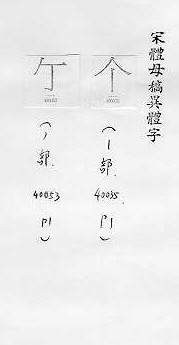 宋體母稿異體字
个
（丨部.
40035.
P1
）
亍
（丿部.
40053
P1
）